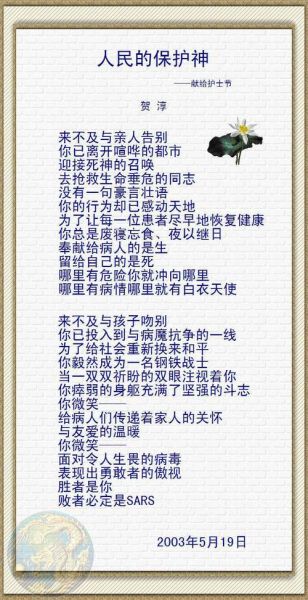 人民的保护神
——献给护士节
贺 淳
来不及与亲人告别
你已离开喧哗的都市
迎接死神的召唤
去抢救生命垂危的同志
没有一句豪言壮语
你的行为却已感动天地
为了让每一位患者尽早地恢复健康
你总是废寝忘食、夜以继日
奉献给病人的是生
留给自己的是死
哪里有危险你就冲向哪里
哪里有病情哪里就有白衣天使
来不及与孩子吻别
你已投入到与病魔抗争的一线
为了给社会重新换来和平
你毅然成为一名钢铁战士
当一双双祈盼的双眼注视着你
你瘁弱的身躯充满了坚强的斗志
你微笑——
给病人们传递着家人的关怀
与友爱的温暖
你微笑——
面对令人生畏的病毒
表现出勇敢者的傲视
胜者是你
败者必定是SARS
2003年5月19日